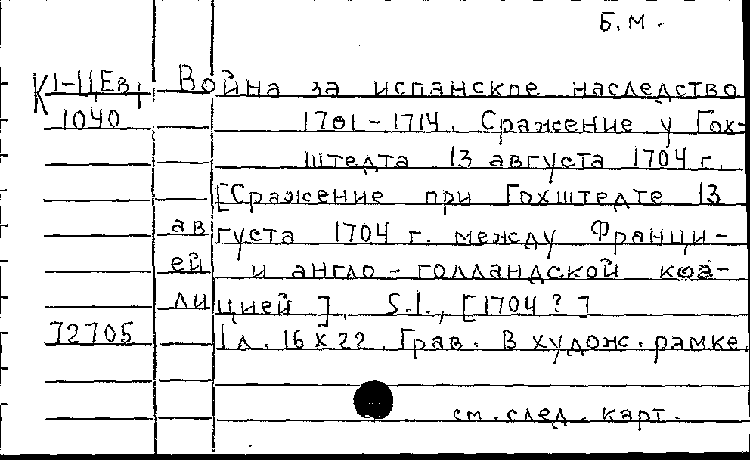 Б.М.
К 1-ЦЕв1 Война за испанское наследство
1040 1701-1714. Сражение у Гох-
штедта 13 августа 1704 г.
[Сражение при Гохштедте 13
августа 1704 г. между Франци-
ей и англо-голландской коа-
лицией]. S.l., [1704?]
72705 1 л. 16 х 22. Грав. В худож. рамке.
см. след. карт.